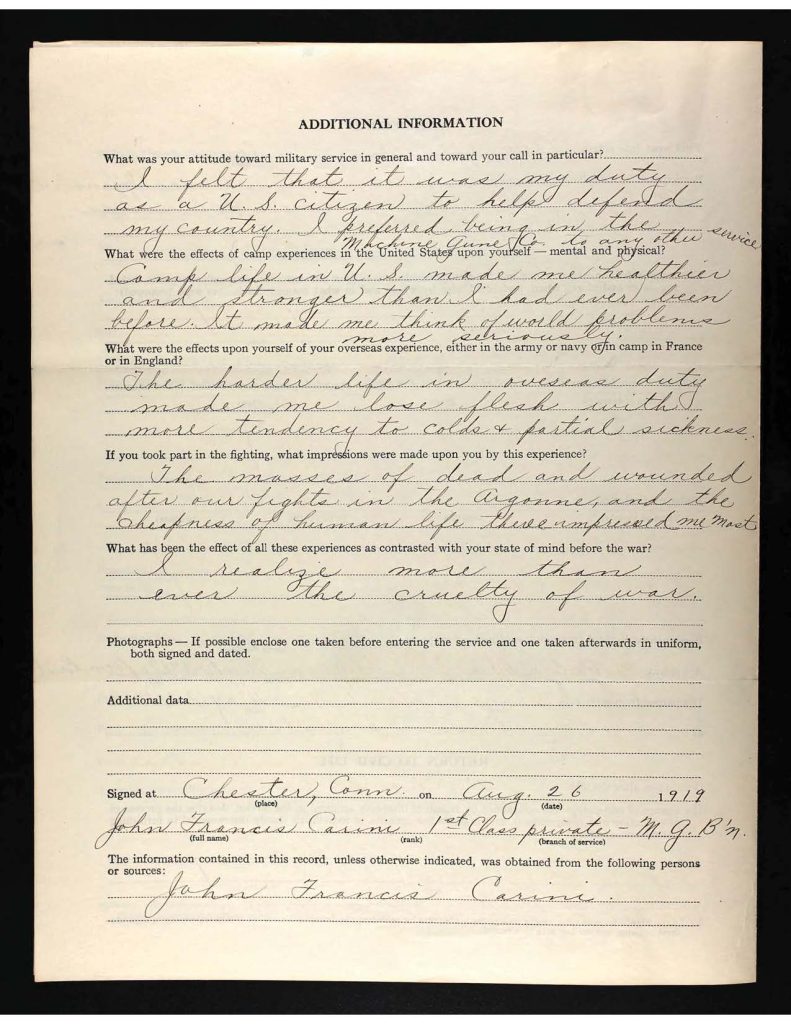 ADDITIONAL INFORMATION
What was your attitude toward military service in general and toward your call in particular?
I felt that it was my duty
as a U. S. citizen to help defend
my country. I preferred being in the
Machine Gune Co. to any other service
What were the effects of camp experiences in the United States upon yourself — mental and physical?
Camp life in U. S. made me healthier
and stronger than I had ever been
before. It made me think of world problems
more seriously.
What were the effects upon yourself of your overseas experience, either in the army or navy or in camp in France
or in England?
The harder life in oveseas duty
made me lose flesh with
more tendency to colds & partial sickness.
If you took part in the fighting, what impressions were made upon you by this experience?
The masses of dead and wounded
after our fights in the Argonne, and the
cheapness of human life there impressed me most
What has been the effect of all these experiences as contrasted with your state of mind before the war?
I realize more than
ever the cruelty of war.
Photographs — If possible enclose one taken before entering the service and one taken afterwards in uniform,
both signed and dated.
Additional data
Signed at Chester, Conn. on Aug. 26 1919
(place) (date)
John Francis Carini 1st Class private - M. G. B'n.
(full name) (rank) (branch of service)
The information contained in this record, unless otherwise indicated, was obtained from the following persons
or sources:
John Francis Carini.